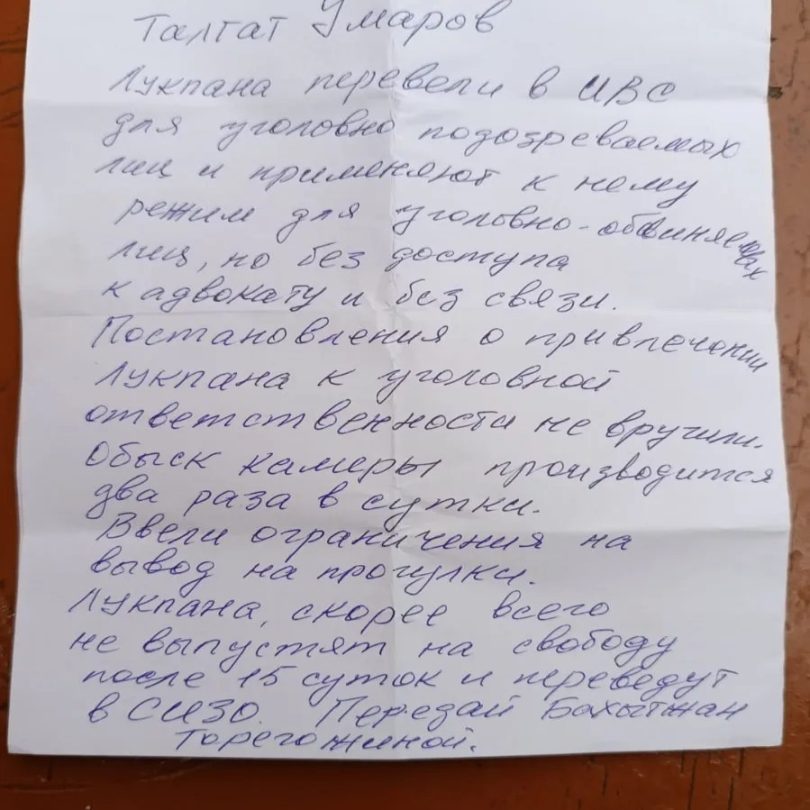 Талгат Умаров
Лукпана перевели в ИВС
для уголовно подозреваемых
лиц и применяют к нему
режим для уголовно-обвиняемых
лиц, но без доступа
к адвокату и без связи.
Постановления о привлечении
Лукпана к уголовной
ответственности не вручили.
Обыск камеры производится
два раза в сутки.
Ввели ограничения на
вывод на прогулки.
Лукпана, скорее всего
не выпустят на свободу
после 15 суток и переведут
в СИЗО. Передай Бахытжан
Торегожиной.